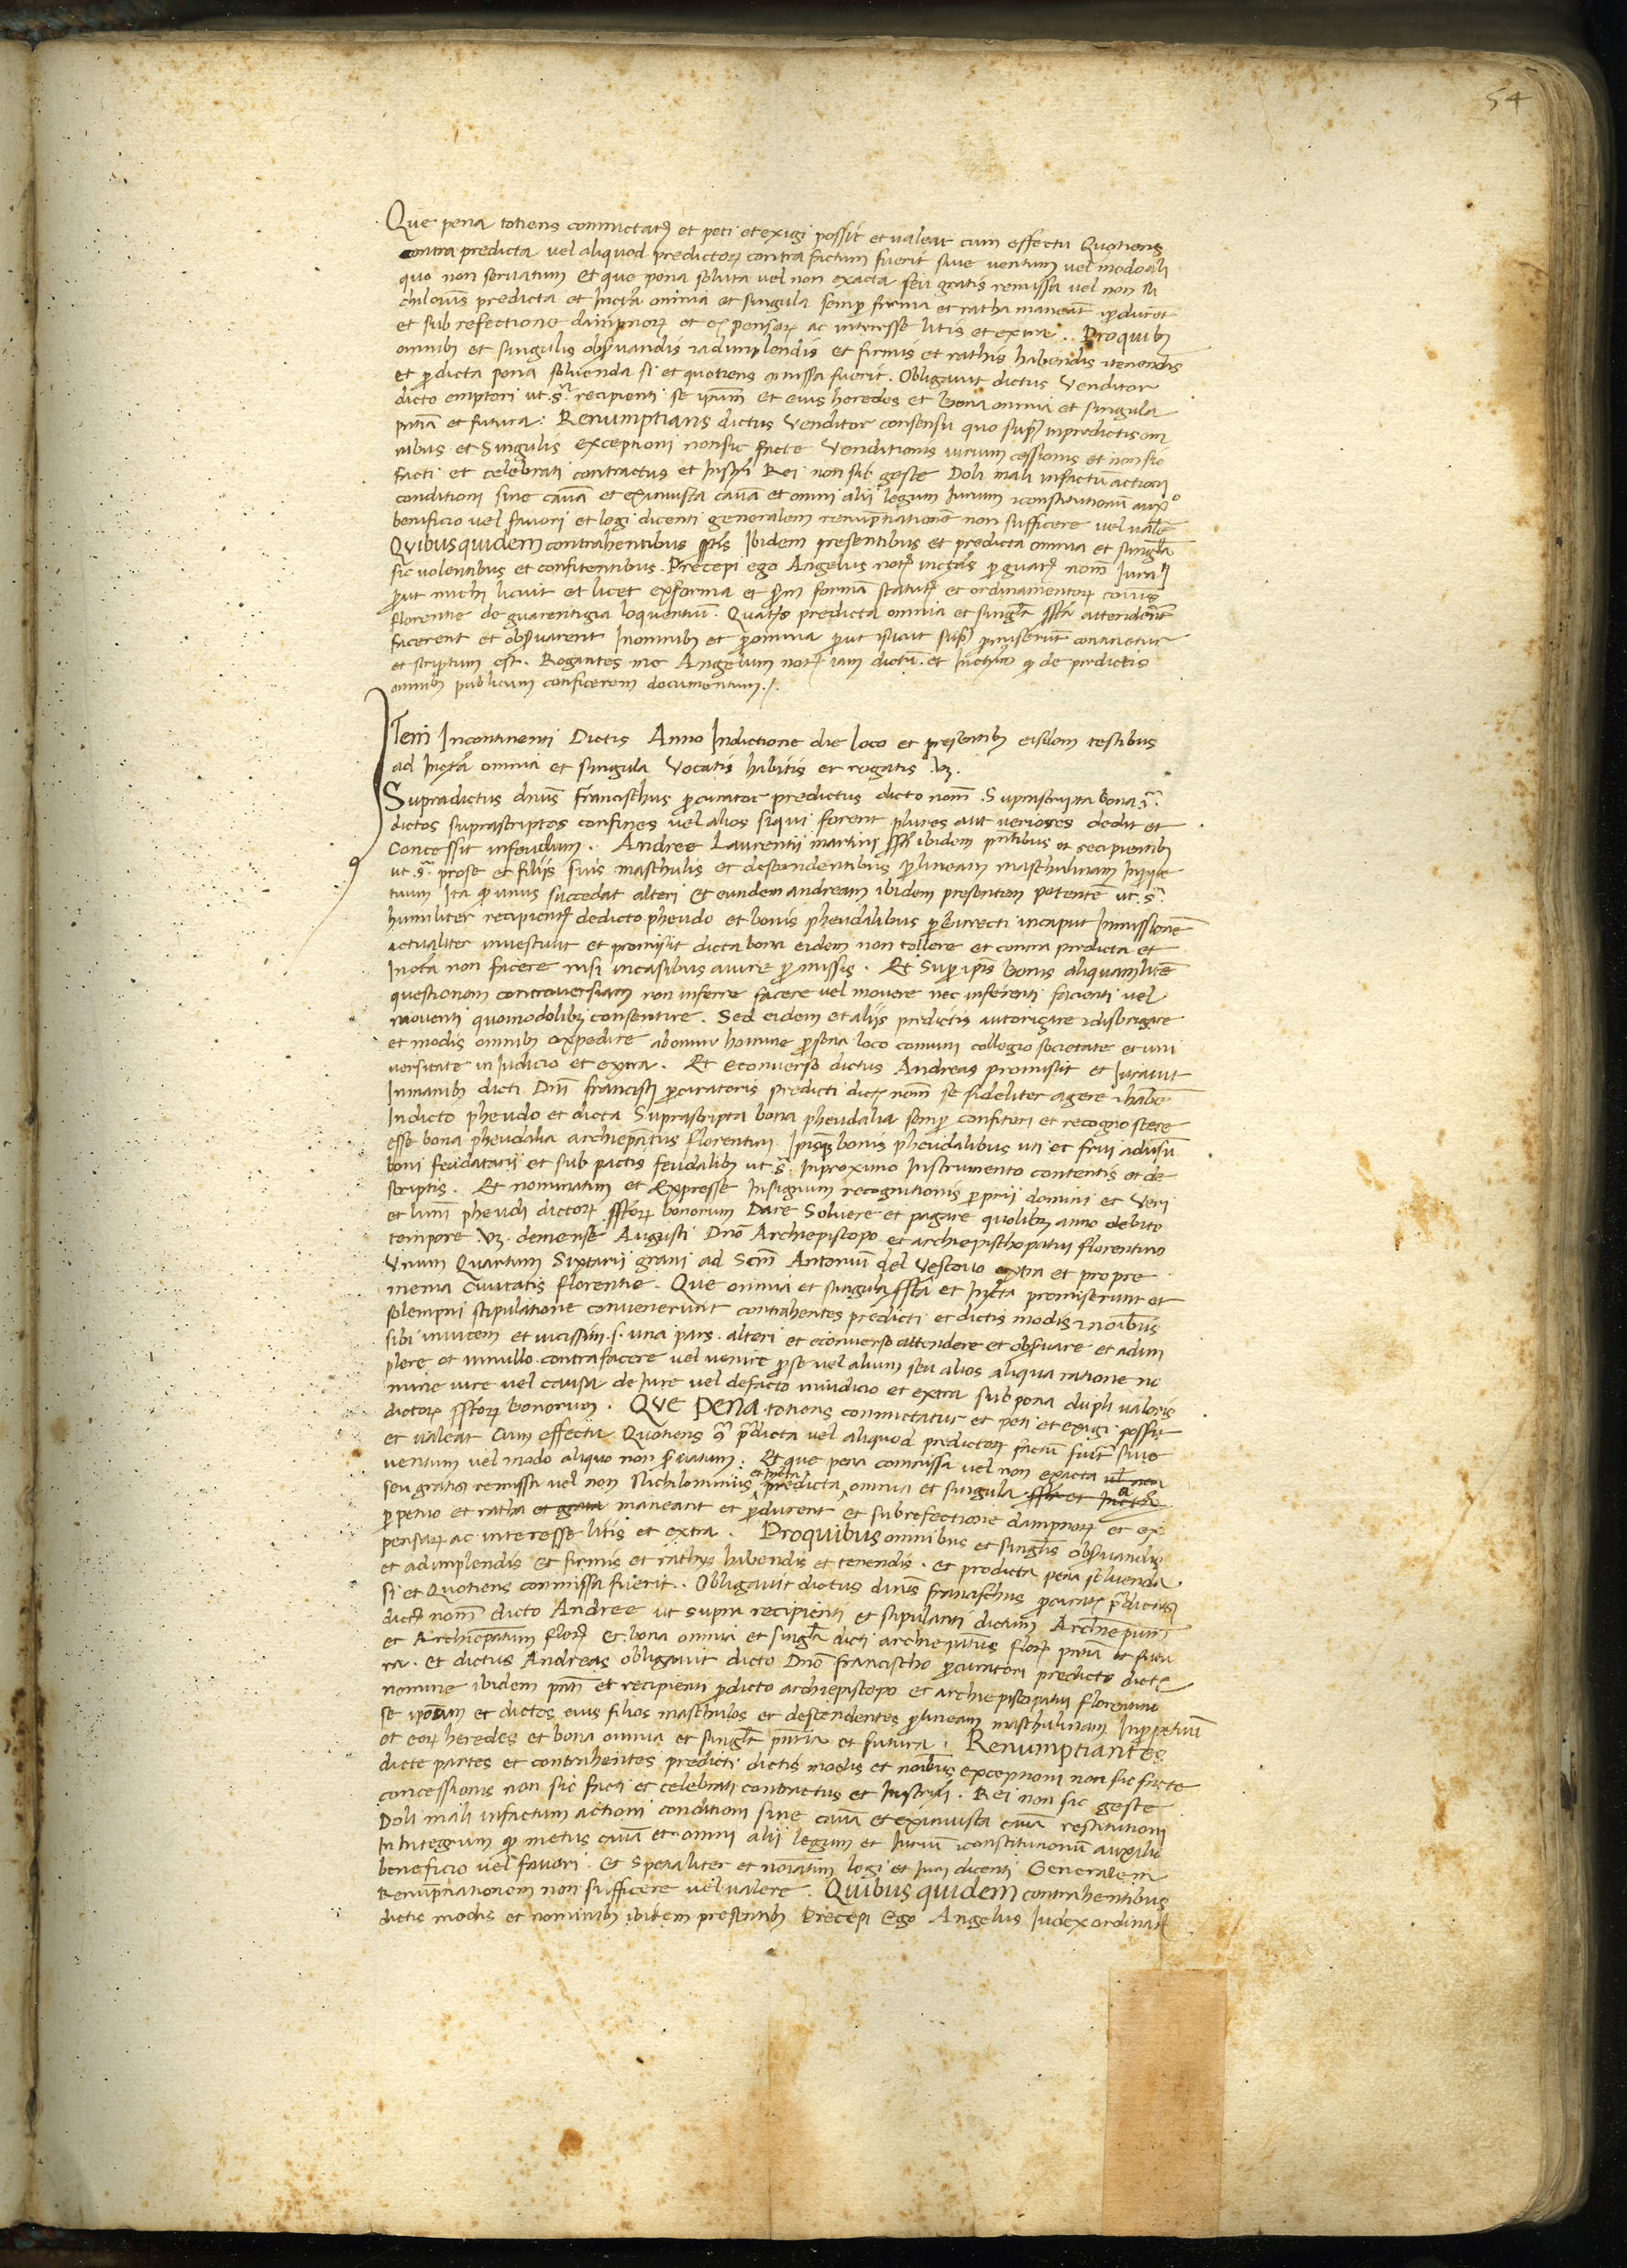 54
Que pena totiens commictat(ur) et peti et exigi possit et valeat cum effectu Quotiens
contra predicta vel aliquod predictor(um) contra factum fuerit sive ventum vel modo ali
quo non servatum Et que pena soluta vel non exacta seu gratis remissa vel non ni
chilominus predicta et infrascripta omnia et singula semper firma et ratha maneant perdurent
et sub refectione dampnor(um) et expensar(um) ac interesse litis et extra. Pro quib(us)
omnib(us) et singulis observandis et adimplendis et firmis et rathis habendis et tenendis
et predicta pena solvenda si et quotiens commissa fuerit. Obligavit dictus Venditor
dicto emptori ut s(upra) recipienti se ipsum et eius heredes et bona omnia et singula
presentia et futura: Renumptians dictus Venditor consensu quo supra in predictis om
nibus et Singulis exceptioni non sic facte Venditionis iurium cessionis et non sic
facti et celebrati contractus et Instrumenti Rei non sic geste Doli mali infactum actioni
conditioni sine causa et ex iniusta causa et omni alii legum Iurium et constitutionum aux(ili)o
beneficio vel favori et legi dicenti generalem renumptiationem non sufficere vel valere
Quibus quidem contrahentibus Ibidem presentibus et predicta omnia et singula
sic volentibus et confitentibus. Precepi ego Angelus not(arius) per guar(entigiam) nom(ine) Iura(menti)
prout michi licuit et licet ex forma et secundum formam statut(orum) et ordinamentor(um) co(mun)is
Florentie de guarentigia loquentium. Quat(enus) predicta omnia et singula attenderent
facerent et observarent In omnibus et per omnia prout supra promiserunt continetur
et scriptum est. Rogantes me Angelum not(arium) iam dictum et infrascriptum q(uod) de predictis
omnib(us) publicum conficerem documentum.
Item Incontinenti Dictis Anno Indictione die loco et presentib(us) eisdem testibus
ad infrascripta omnia et singula Vocatis habitis et rogatis vz.
Supradictus dnus Francischus procurator predictus dicto nom(ine) Suprascripta bona
dictos suprascriptos confines vel alios siqui forent plures aut veriores dedit et
Concessit in feudum. Andree Laurentii martini ibidem presentibus et recipientib(us)
ut s(upra) pro se et filiis suis maschulis et descendentibus per lineam maschulinam In perpe
tuum Ita q(uod) unus succedat alteri Et eundem andream ibidem presentem petentem ut s(upra)
humiliter recipient(em) de dicto pheudo et bonis pheudalibus per birrecti in caput Inmissionem
actualiter investivit et promisit dicta bona eidem non tollere et contra predicta et
infrascripta non facere nisi in casibus a iure permissis. Et super ipsis bonis aliquam litem
questionem controversiam non inferre facere vel movere nec inferenti facienti vel
moventi quomodolib(et) consentire. Sed eidem et aliis predictis autorizare et disbrigare
et modis omnib(us) expedire ab omni homine persona loco comuni collegio societate et uni
versitate in Iudicio et extra. Et econverso dictus Andreas promisit et Iuravit
In manib(us) dicti Dni Francisci procuratoris predicti dicto nom(ine) se fideliter agere et habere
In dicto pheudo et dicta Suprascripta bona pheudalia semper confiteri et recognoscere
esse bona pheudalia archiepiscopatus Florentini Ipisque bonis pheudalibus uti et frui ad usum
boni feudatarii et sub pactis feudalib(us) ut s(upra) In proximo Instrumento contentis et de
scriptis. Et nominatim et Expresse In signum recognitionis proprii domini et Veri
et pheudi dictor(um) bonorum Dare Solvere et pagare quolib(et) anno debito
tempore vz. de mense Augusti Dno Archiepiscopo et archiepischopatui Florentino
Unum Quartum Sixtarii grani ad Scm Antonium del Vescovo extra et prope
menia Civitatis Florentie. Que omnia et singula et infrascripta promiserunt et
solempni stipulatione convenerunt contrahentes predicti et dictis modis et no(min)ibus
sibi invicem et vicissim .s. una pars alteri et econverso attendere et observare et adim
plere et in nullo contrafacere vel venire per se vel alium seu alios aliqua ratione no
mine iure vel causa de Iure vel de facto in iudicio et extra sub pena dupli valoris
dictor(um) bonorum. Que pena totiens commictatur et peti et exigi possit
et valeat Cum effectu Quotiens contra predicta vel aliquod predictor(um) factum fuerit sive
ventum vel modo aliquo non servatum. Et que pena commissa vel non exacta vel non
seu gratis remissa vel non Nichilominus et infrascripta predicta omnia et singula
perpetuo et ratha et grata maneant et perdurent et sub refectione dampnor(um) et ex
pensar(um) ac interesse litis et extra. Pro quibus omnibus et singulis observandis
et adimplendis et firmis et rathis habendis et tenendis. et predicta pena solvenda
si et Quotiens commissa fuerit. Obligavit dictus dnus Francischus procurator predictus
dicto nom(ine) dicto Andree ut supra recipienti et stipulanti dictum Archiepiscopum
et Archiepiscopatum Flor(entinum) et bona omnia et singula dicti archiepiscopatus Flor(entini) presentia et futu
ra. et dictus Andreas obligavit dicto Dno Francischo procuratori predicto dicto
nomine ibidem presenti et recipienti predicto archiepiscopo et archiepiscopatui Florentino
se ipsum et dictos eius filios maschulos et descendentes per lineam maschulinam In perpetuum
et eor(um) heredes et bona omnia et singula presentia et futura. Renumptiantes
dicte partes et contrahentes predicti dictis modis et no(min)ibus exceptioni non sic facte
concessionis non sic facti et celebrati contractus et Instrumenti. Rei non sic geste
Doli mali infactum actioni conditioni sine causa et ex iniusta causa restitutioni
In Integrum q(uod) metus causa et omni alii legum et Iurium et constitutionum auxilio
beneficio vel favori. Et Spetialiter et nominatim legi et Iuri dicenti Generalem
Renumptiationem non sufficere vel valere. Quibus quidem contrahentibus
dictis modis et nominib(us) ibidem presentib(us) Precepi Ego Angelus Iudex ordinari(us)